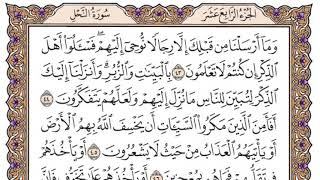 الجزء الرابع عشر سورة النحل
وَمَا أَرْسَلْنَا مِن قَبْلِكَ إِلَّا رِجَالًا نُّوحِي إِلَيْهِمْ فَسْـَٔلُوا أَهْلَ
الذِّكْرِ إِن كُنتُمْ لَا تَعْلَمُونَ ٤٣ بِالْبَيِّنَاتِ وَالزُّبُرِ وَأَنزَلْنَا إِلَيْكَ
الذِّكْرَ لِتُبَيِّنَ لِلنَّاسِ مَا نُزِّلَ إِلَيْهِمْ وَلَعَلَّهُمْ يَتَفَكَّرُونَ ٤٤
أَفَأَمِنَ الَّذِينَ مَكَرُوا السَّيِّئَاتِ أَن يَخْسِفَ اللَّهُ بِهِمُ الْأَرْضَ
أَوْ يَأْتِيَهُمُ الْعَذَابُ مِنْ حَيْثُ لَا يَشْعُرُونَ ٤٥ أَوْ يَأْخُذَهُمْ
فِي تَقَلُّبِهِمْ فَمَا هُم بِمُعْجِزِينَ ٤٦ أَوْ يَأْخُذَهُمْ عَلَىٰ تَخَوُّفٍ فَإِنَّ